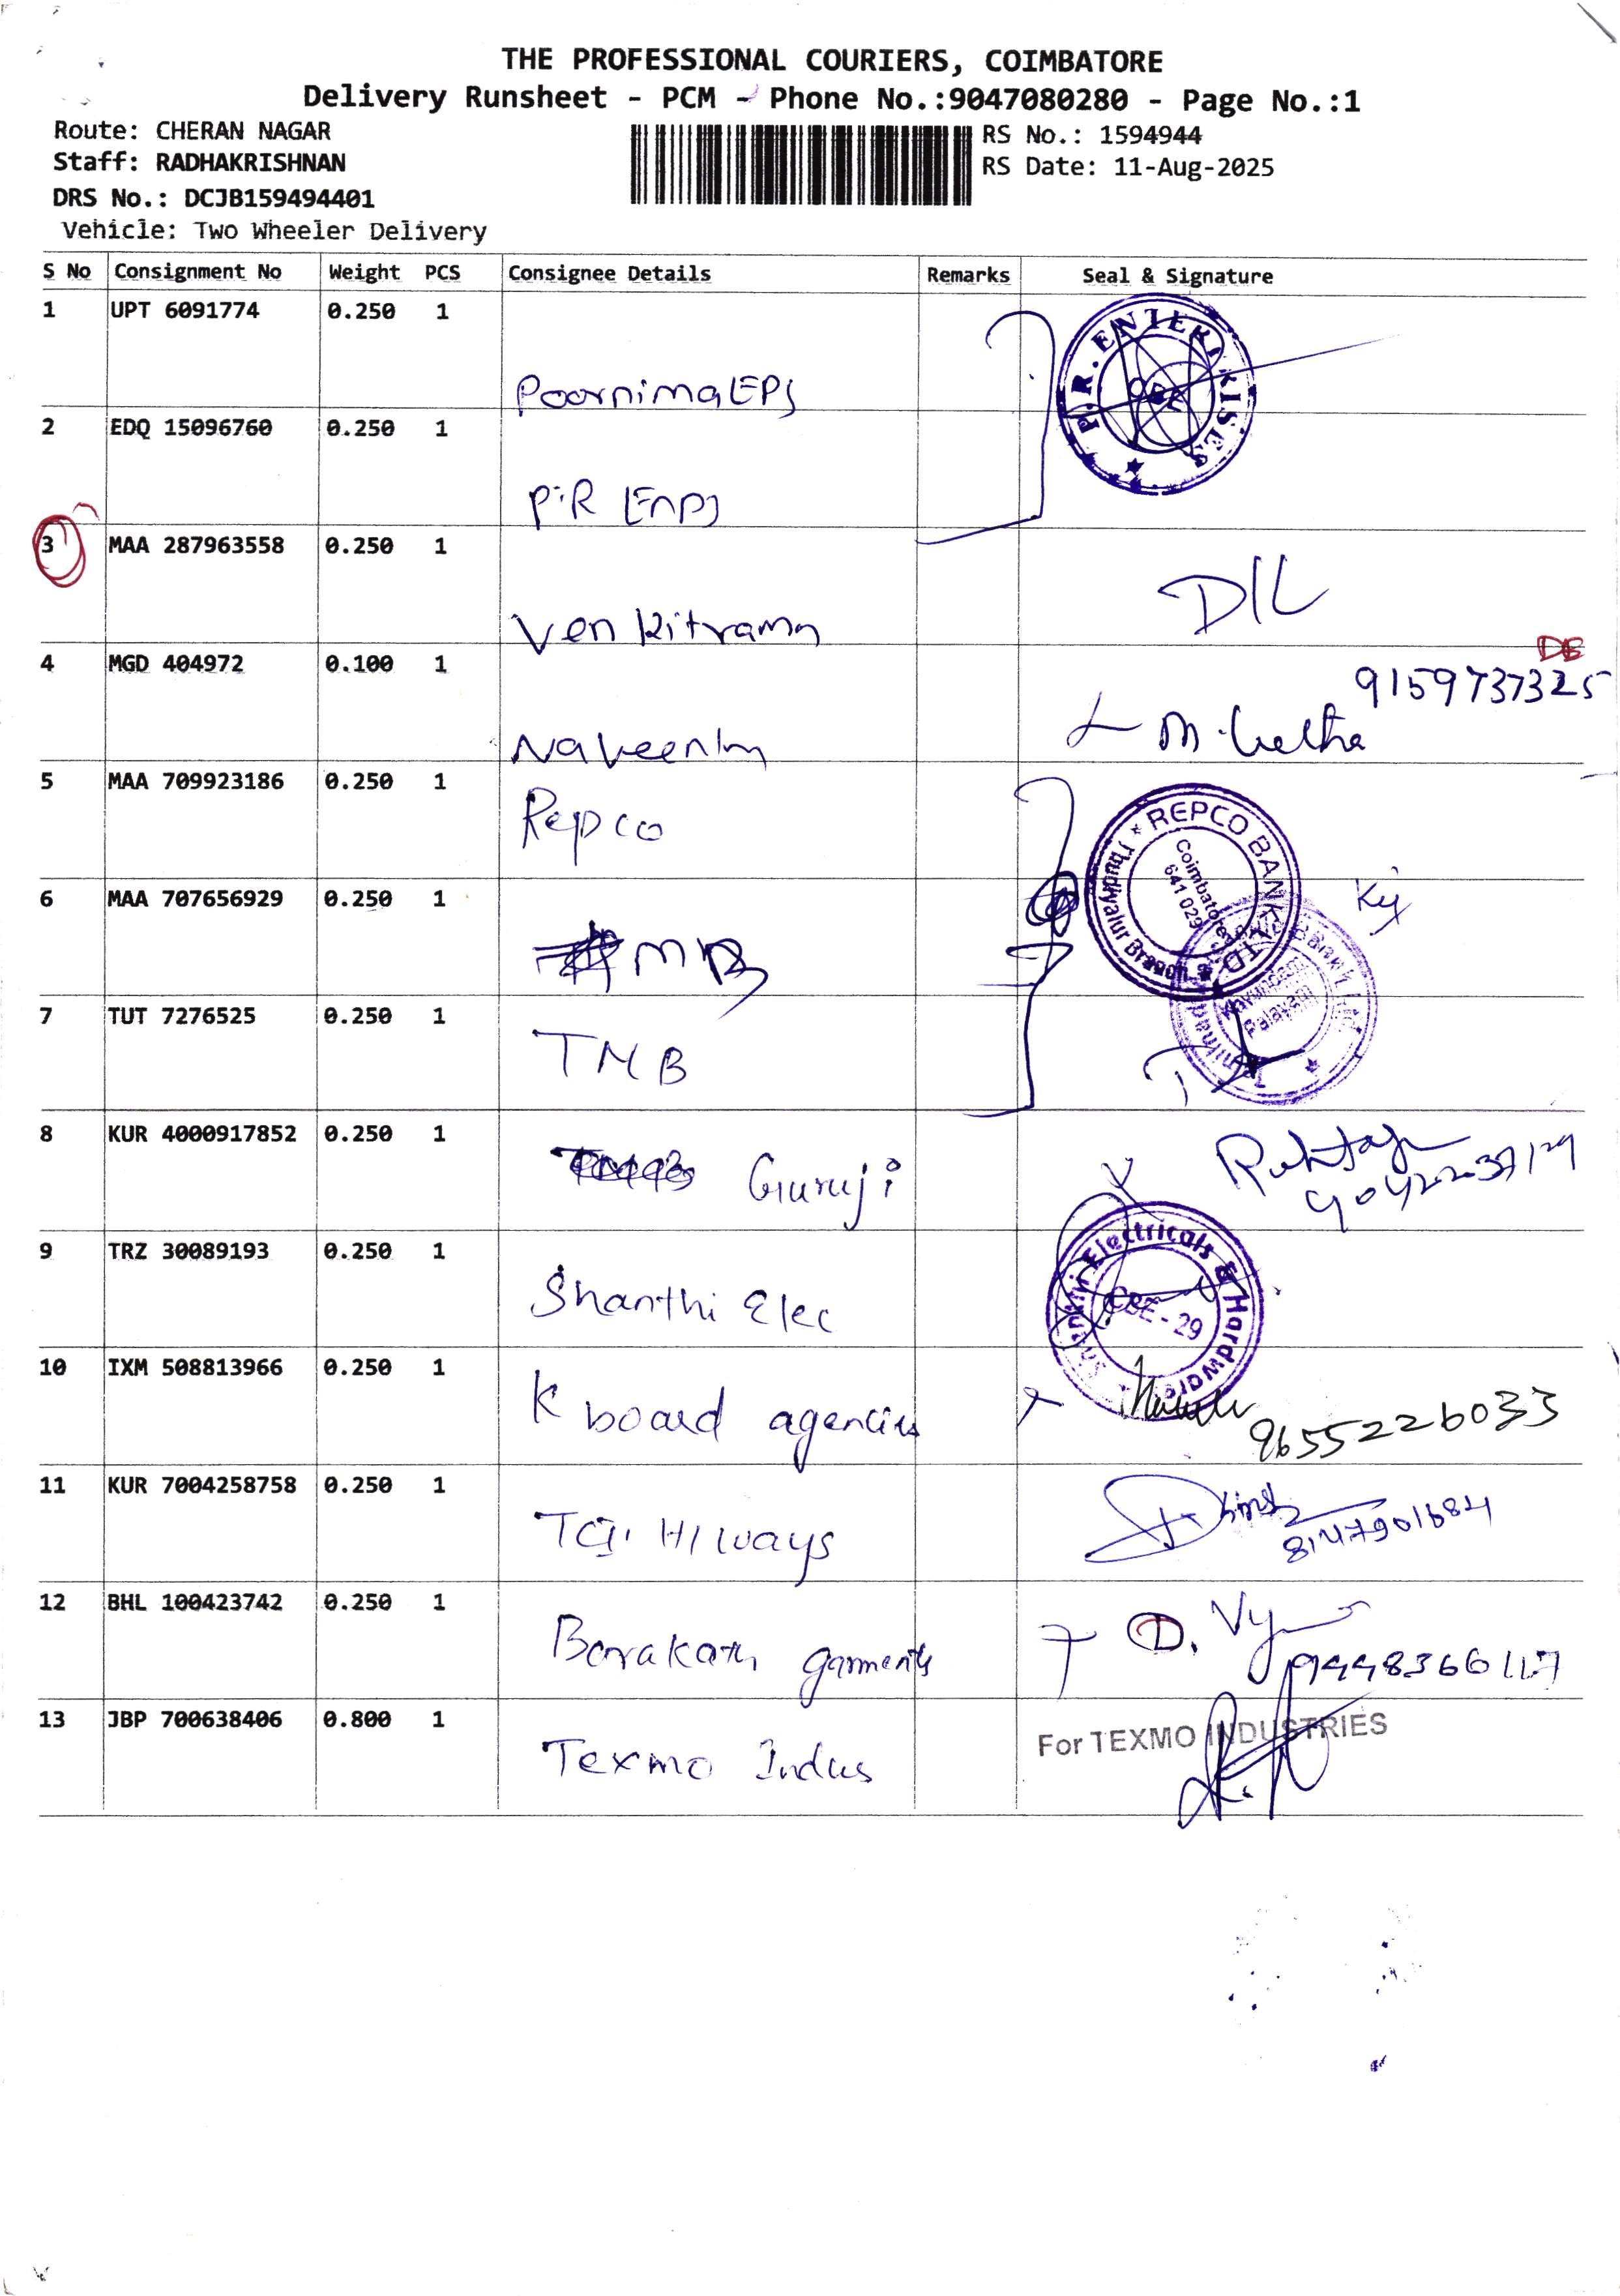 THE PROFESSIONAL COURIERS, COIMBATORE
Delivery Runsheet - PCM - Phone No.:9047080280 - Page No.:1
Route: CHERAN NAGAR
Staff: RADHAKRISHNAN
DRS No.: DCJB159494401
Vehicle: Two Wheeler Delivery
RS No.: 1594944
RS Date: 11-Aug-2025
S No Consignment No Weight PCS Consignee Details Remarks Seal & Signature
1 UPT 6091774 0.250 1
Poornima EPS
P.R. ENTERPRISES
CBE
2 EDQ 15096760 0.250 1
P.R
3 MAA 287963558 0.250 1
Venkitraman
D/L
4 MGD 404972 0.100 1
9159737325
M. Geetha
5 MAA 709923186 0.250 1
Repco
REPCO BANK LTD
Thudiyalur Branch
Coimbatore
641 029
6 MAA 707656929 0.250 1
MB
Tamilnad Mercantile Bank Ltd
Kavundam
Palayam
7 TUT 7276525 0.250 1
TMB
8 KUR 4000917852 0.250 1
Guruji
9 TRZ 30089193 0.250 1
Shanthi Elec
Electricals & Hardware
CBE - 29
10 IXM 508813966 0.250 1
K board agencies
9655226033
11 KUR 7004258758 0.250 1
TCI Hiways
8147901684
12 BHL 100423742 0.250 1
Barakath garments
D.
9448366117
13 JBP 700638406 0.800 1
Texmo Indus
For TEXMO INDUSTRIES